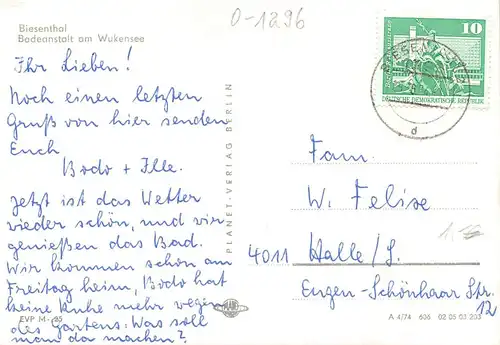 0-1296
Biesenthal
Badeanstalt am Wukensee
Ihr Lieben!
Noch einen letzten
Gruß von hier senden
Euch
Bodo + Ille.
Jetzt ist das Wetter
wieder schön, und wir
genießen das Bad.
Wir kommen schon am
Freitag heim, Bodo hat
keine Ruhe mehr wegen
des Gartens: Was soll
man da machen?
EVP M -,25
PLANET-VERLAG BERLIN
10
DEUTSCHE DEMOKRATISCHE REPUBLIK
d
Fam.
W. Felise
4011 Halle/S.
Eugen-Schönhaar Str.
12
A 4/74 606 02 05 03 203